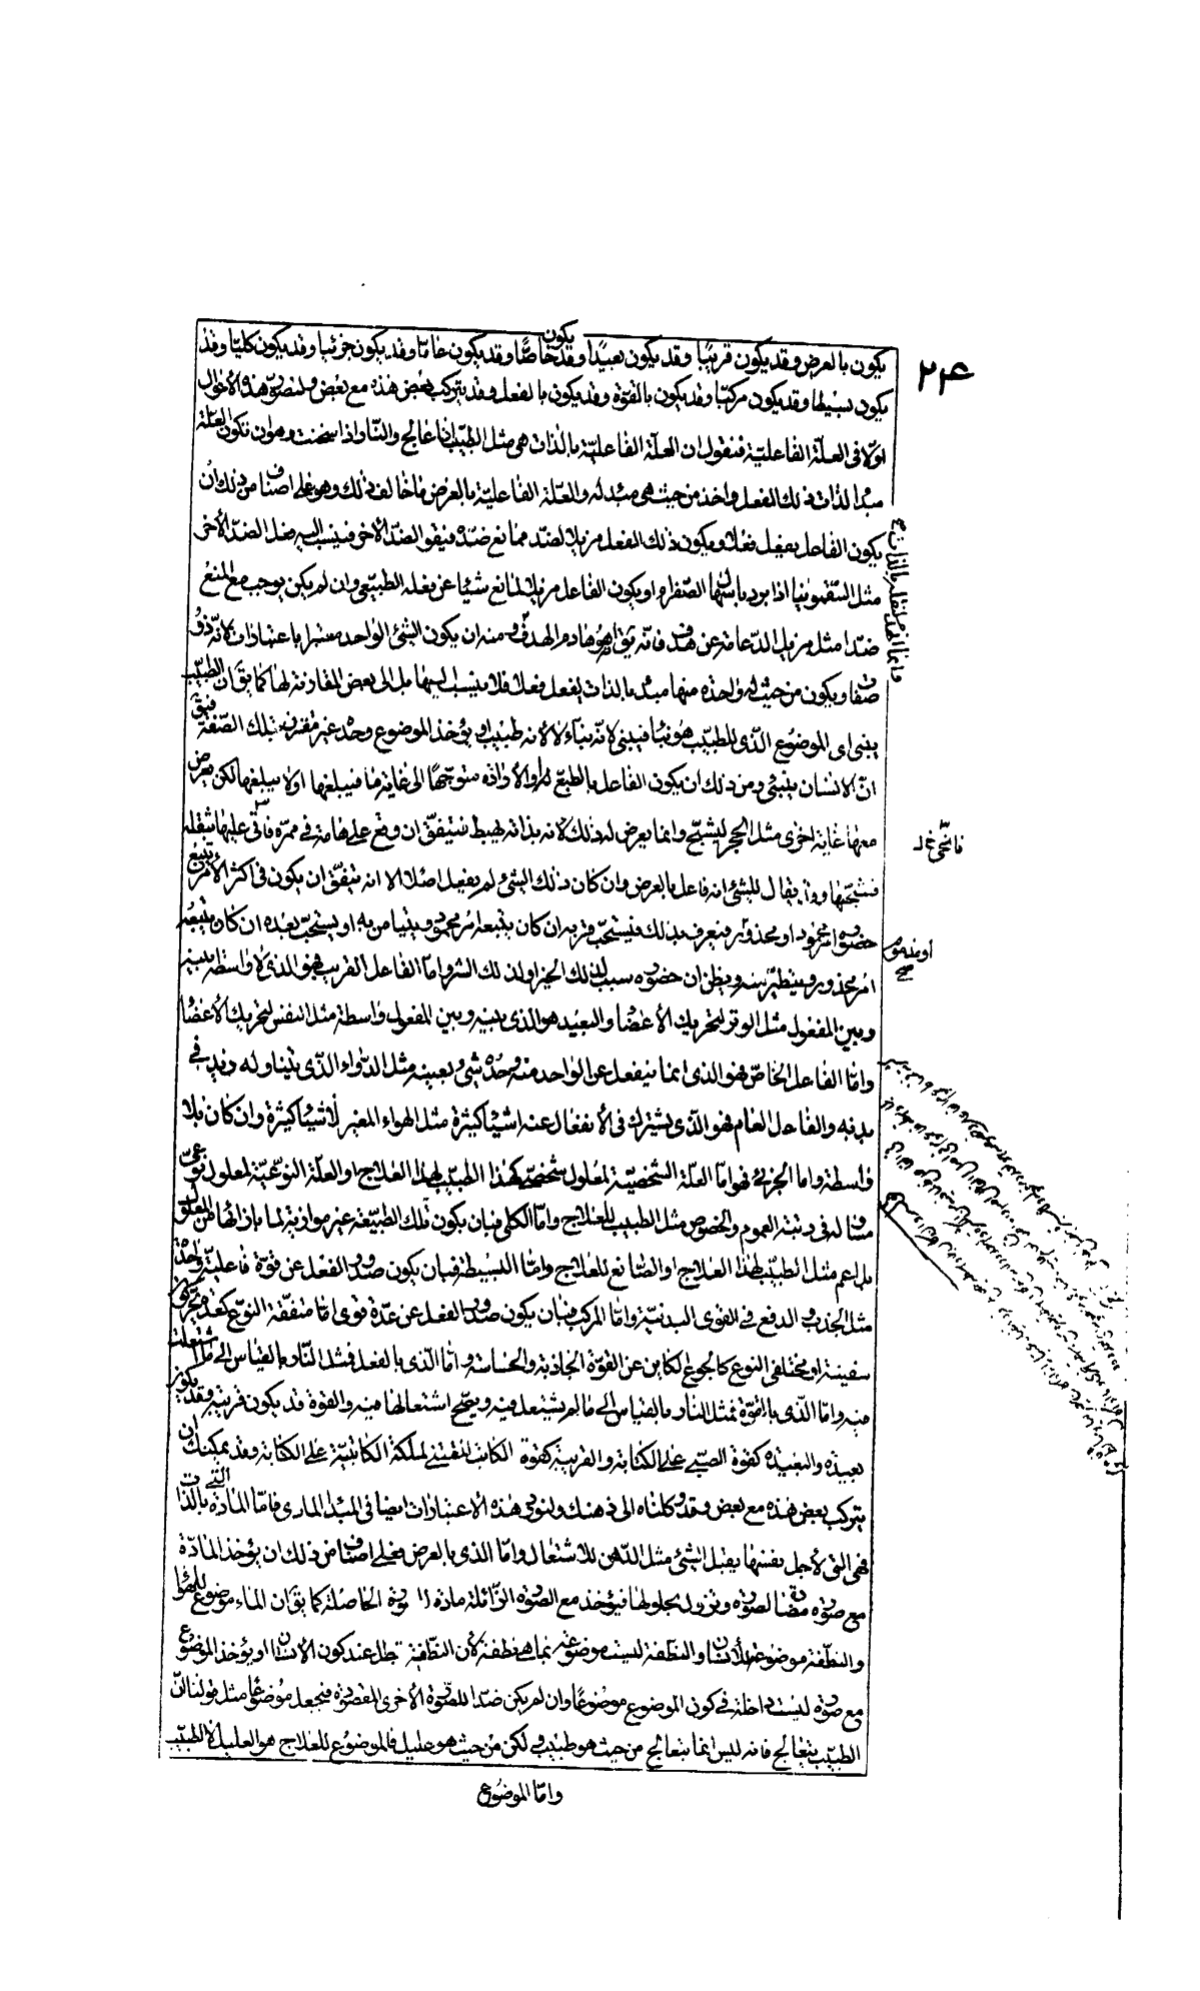 ٢٤
يكون بالعرض وقد يكون قريبًا وقد يكون بعيدًا وقد يكون خاصًّا وقد يكون عامًّا وقد يكون جزئيا وقد يكون كليّا وقد
يكون بسيطا وقد يكون مركبّا وقد يكون بالقوّة وقد يكون بالفعل وقد يتركب بعض هذه مع بعض ولنصوّر هذه الأحوال
اوّلا فى العلّة الفاعليّة فنقول ان العلّة الفاعليّة بالذات هى مثل الطبيب اذا عالج والنّار اذا سخنت وهو ان تكون العلّة
مبدأ لذات ذلك الفعل واخذ من حيث هى مبدء له والعلّة الفاعليّة بالعرض ما خالف ذلك وهو على اصناف من ذلك ان
يكون الفاعل يفعل فعلا ويكون ذلك الفعل مزيلا لضدّ ممانع ضدّه فيقوّ الضدّ الأخر فينسب اليه فعل الضدّ الأخر
مثل السّقمونيا اذا برد باسهال الصّفراء او يكون الفاعل مزيلا لمانع شيئا عن فعله الطبيعى وان لم يكن يوجب مع المنع
ضدّا مثل مزيل الدّعامة عن هدف فانّه يقال هو هادم الهدف ومنه ان يكون الشئ الواحد معتبرا باعتبارات لانّه ذو
صفات ويكون من حيث له واحدة منها مبدء بالذات لفعل فعلا فلا ينسب اليها بل الى بعض المقارنة لها كما يقال ان الطبيب
يبنى اى الموضوع الذّى للطبيب هو بنّاء فيبنى لانّه بنّاء لا لأنه طبيب او يؤخذ الموضوع وحده غير مقترن بتلك الصّفة فيقال
انّ الانسان يبنى ومن ذلك ان يكون الفاعل بالطبع او الأرادة متوجّها الى غاية ما فيبلغها او لا يبلغها لكن يعرض
معها غاية اخرى مثل الحجر ليشجّ وانما يعرض له ذلك لانه بذاته يهبط فيتفق ان وقع على هامة فى ممرّه فاتى عليها بثقله
فشجّها وقد يقال للشئ انه فاعل بالعرض وان كان ذلك الشئ لم يفعل اصلا الا انه يتفق ان يكون فى اكثر الأمر يتبع
حضوره امر محمود او محذور فيعرف بذلك فيستحبّ قربه ان كان يتبعه امر محمود ويتيامن به او يستحبّ بعده ان كان يتبعه
امر محذور ويتطيّر منه ويظن ان حضوره سبب لذلك الخير او لذلك الشر وامّا الفاعل القريب فهو الذى لا واسطة بينه
وبين المفعول مثل الوتر لتحريك الأعضاء والبعيد هو الذى بينه وبين المفعول واسطة مثل النفس لتحريك الأعضاء
وامّا الفاعل الخاصّ فهو الذى انما ينفعل عن الواحد منه وحده شئ بعينه مثل الدّواء الذّى يتناوله زيد فى
بدنه والفاعل العام فهو الذّى يشترك فى الأنفعال عنه اشياء كثيرة مثل الهواء المغير لأشياء كثيرة وان كان بلا
واسطة واما الجزئى فهو امّا العلّة الشخصيّة لمعلول شخصىّ كهذا الطبيب لهذا العلاج او العلّة النوعيّة لمعلول نوعىّ
مساو له فى رتبة العموم والخصوص مثل الطبيب للعلاج وامّا الكلى فبان يكون تلك الطبيعة غير موازية لما بازائها من المعلول
بل اعم مثل الطبيب لهذا العلاج او الصّانع للعلاج وامّا البسيط فبان يكون صدور الفعل عن قوّة فاعليّة واحدة
مثل الجذب والدفع فى القوى البدنيّة وامّا المركب فبان يكون صدور الفعل عن عدّة قوى امّا متفقة النوع كعدّة يحرّكون
سفينة او مختلفى النوع كالجوع الكاين عن القوّة الجاذبة والحسّاسة وامّا الذّى بالفعل فمثل النّار بالقياس الى ما اشتعلت
فيه وامّا الذّى بالقوّة فمثل النار بالقياس الى ما لم يشتعل فيه ويصحّ اشتعالها فيه والقوة قد يكون قريبة وقد يكون
بعيدة والبعيدة كقوة الصبىّ على الكتابة والقريبة كقوة الكاتب المقتنى لملكة الكتابيّة على الكتابة وقد يمكنك ان
يتركب بعض هذه مع بعض وقد وكلناه الى ذهنك ولنورد هذه الأعتبارات ايضا فى المبدأ المادى فامّا المادّة التى بالذات
فهى التى لأجل نفسها يقبل الشئ مثل الدّهن للاشتعال وامّا الذى بالعرض فعلى اصناف من ذلك ان يؤخذ المادّة
مع صورة مضادّة لصورة وتزول بحلولها فيؤخذ مع الصورة الزّائلة مادة للصورة الحاصلة كما يقال ان الماء موضوع للهواء
والنطّفة موضوعة للأنسان والنطّفة ليست موضوعة بما هى نطفة لأن النطّفة تبطل عند كون الانسان او يؤخذ الموضوع
مع صورة ليست داخلة فى كون الموضوع موضوعًا وان لم يكن ضدّا للصّورة الأخرى المقصودة فيجعل موضوعًا مثل قولنا انّ
الطبيب يتعالج فانه ليس انما يتعالج من حيث هو طبيب ولكن من حيث هو عليل فالموضوع للعلاج هو العليل لا الطبيب
وامّا الموضوع